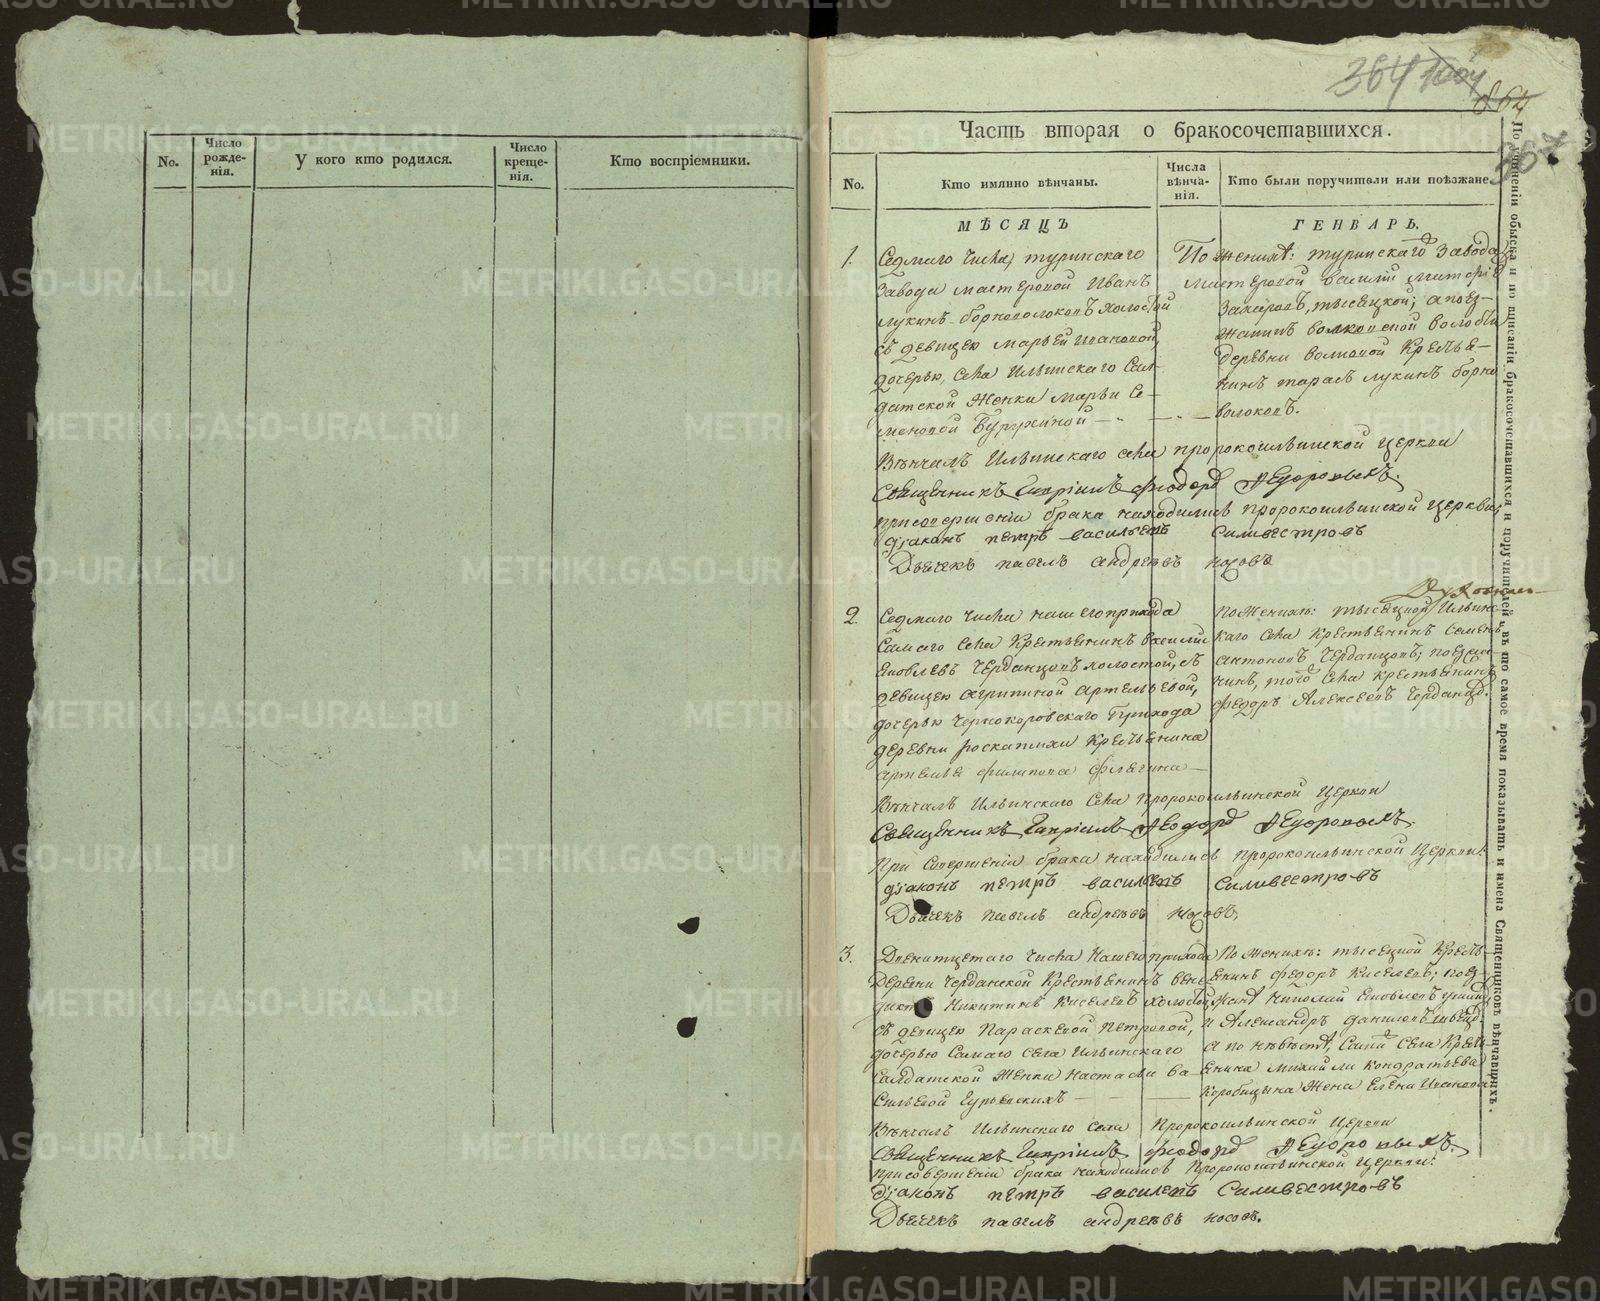 No.
Число рожде-нія.
У кого кто родился.
Число креще-нія.
Кто воспріемники.
364
864
367
Часть вторая о бракосочетавшихся.
No.
Кто имянно вѣнчаны.
Числа вѣнча-нія.
Кто были поручители или поѣзжане
МѢСЯЦЪ
ГЕНВАРЬ.
1.
Седмаго числа, туринскаго
завода мастеровой Иванъ
лукинъ борноволоковъ холостой
съ девицею марьей ивановой,
дочерью, села Ильинскаго Сал-
датской Женки марьи Се-
меновой
По Женихѣ: туринскаго завода
мастеровой василий
Захаровъ, тысецкой; а поез-
жанинъ волости
деревни волковой Крестья-
нинъ тарасъ лукинъ борно
волоковъ.
Вѣнчалъ Ильинскаго села пророкоильинской церкви
Священникъ Гавріилъ Феодоровыхъ.
при совершеніи брака находились пророкоильинской церкви
діаконъ петръ васильевъ Силивестровъ
Дьячекъ павелъ андреевъ носовъ
2.
Седмаго числа нашего прихода
Самаго села Крестьянинъ василий
Яковлевъ Черданцовъ холостой, съ
девицею агрипиной артемьевой,
дочерью Чернокоровскаго Прихода
деревни роскатихи Крестьянина
артемья филипова
По Женихѣ: тысецкой Ильин-
скаго села Крестьянинъ Семенъ
антоновъ Черданцовъ; поезжа-
нинъ, того села крестьянинъ
федоръ Алексеевъ Черданцовъ.
Вѣнчалъ Ильинскаго Села Пророкоильинской Церкви
Священникъ Гавріилъ Феодоровыхъ.
При Совершеніи брака находились пророкоильинской Церкви:
діаконъ петръ васильевъ Силивестровъ
Дьячекъ павелъ андреевъ носовъ,
3.
Двенатцетаго числа Нашего прихода
Деревни Черданской Крестьянинъ вене-
диктъ Никитинъ Киселевъ холостой,
съ девицею Параскевой Петровой,
дочерью Самаго Села Ильинскаго
Салдатской Женки Настасьи Ва-
сильевой Гурьевскихъ
По Женихѣ: тысецкой Кресть-
янинъ федоръ Киселевъ; поез-
жане Николай Яковлевъ
и Александръ даниловъ
а по невѣстѣ, Самаго Села Крест-
янина михайла Кондратьева
Коробицына Жена Елена Иванова
Вѣнчалъ Ильинскаго Села Пророкоильинской Церкви
Священникъ Гавріилъ Феодоровыхъ.
при совершеніи брака находились Пророкоильинской Церкви:
діаконъ петръ васильевъ Силивестровъ
Дьячекъ павелъ андреевъ носовъ.
По учиненіи обыска и по вписаніи бракосочетавшихся и поручителей, въ то самое время показывать и имена Священниковъ вѣнчавшихъ.
METRIKI.GASO-URAL.RU